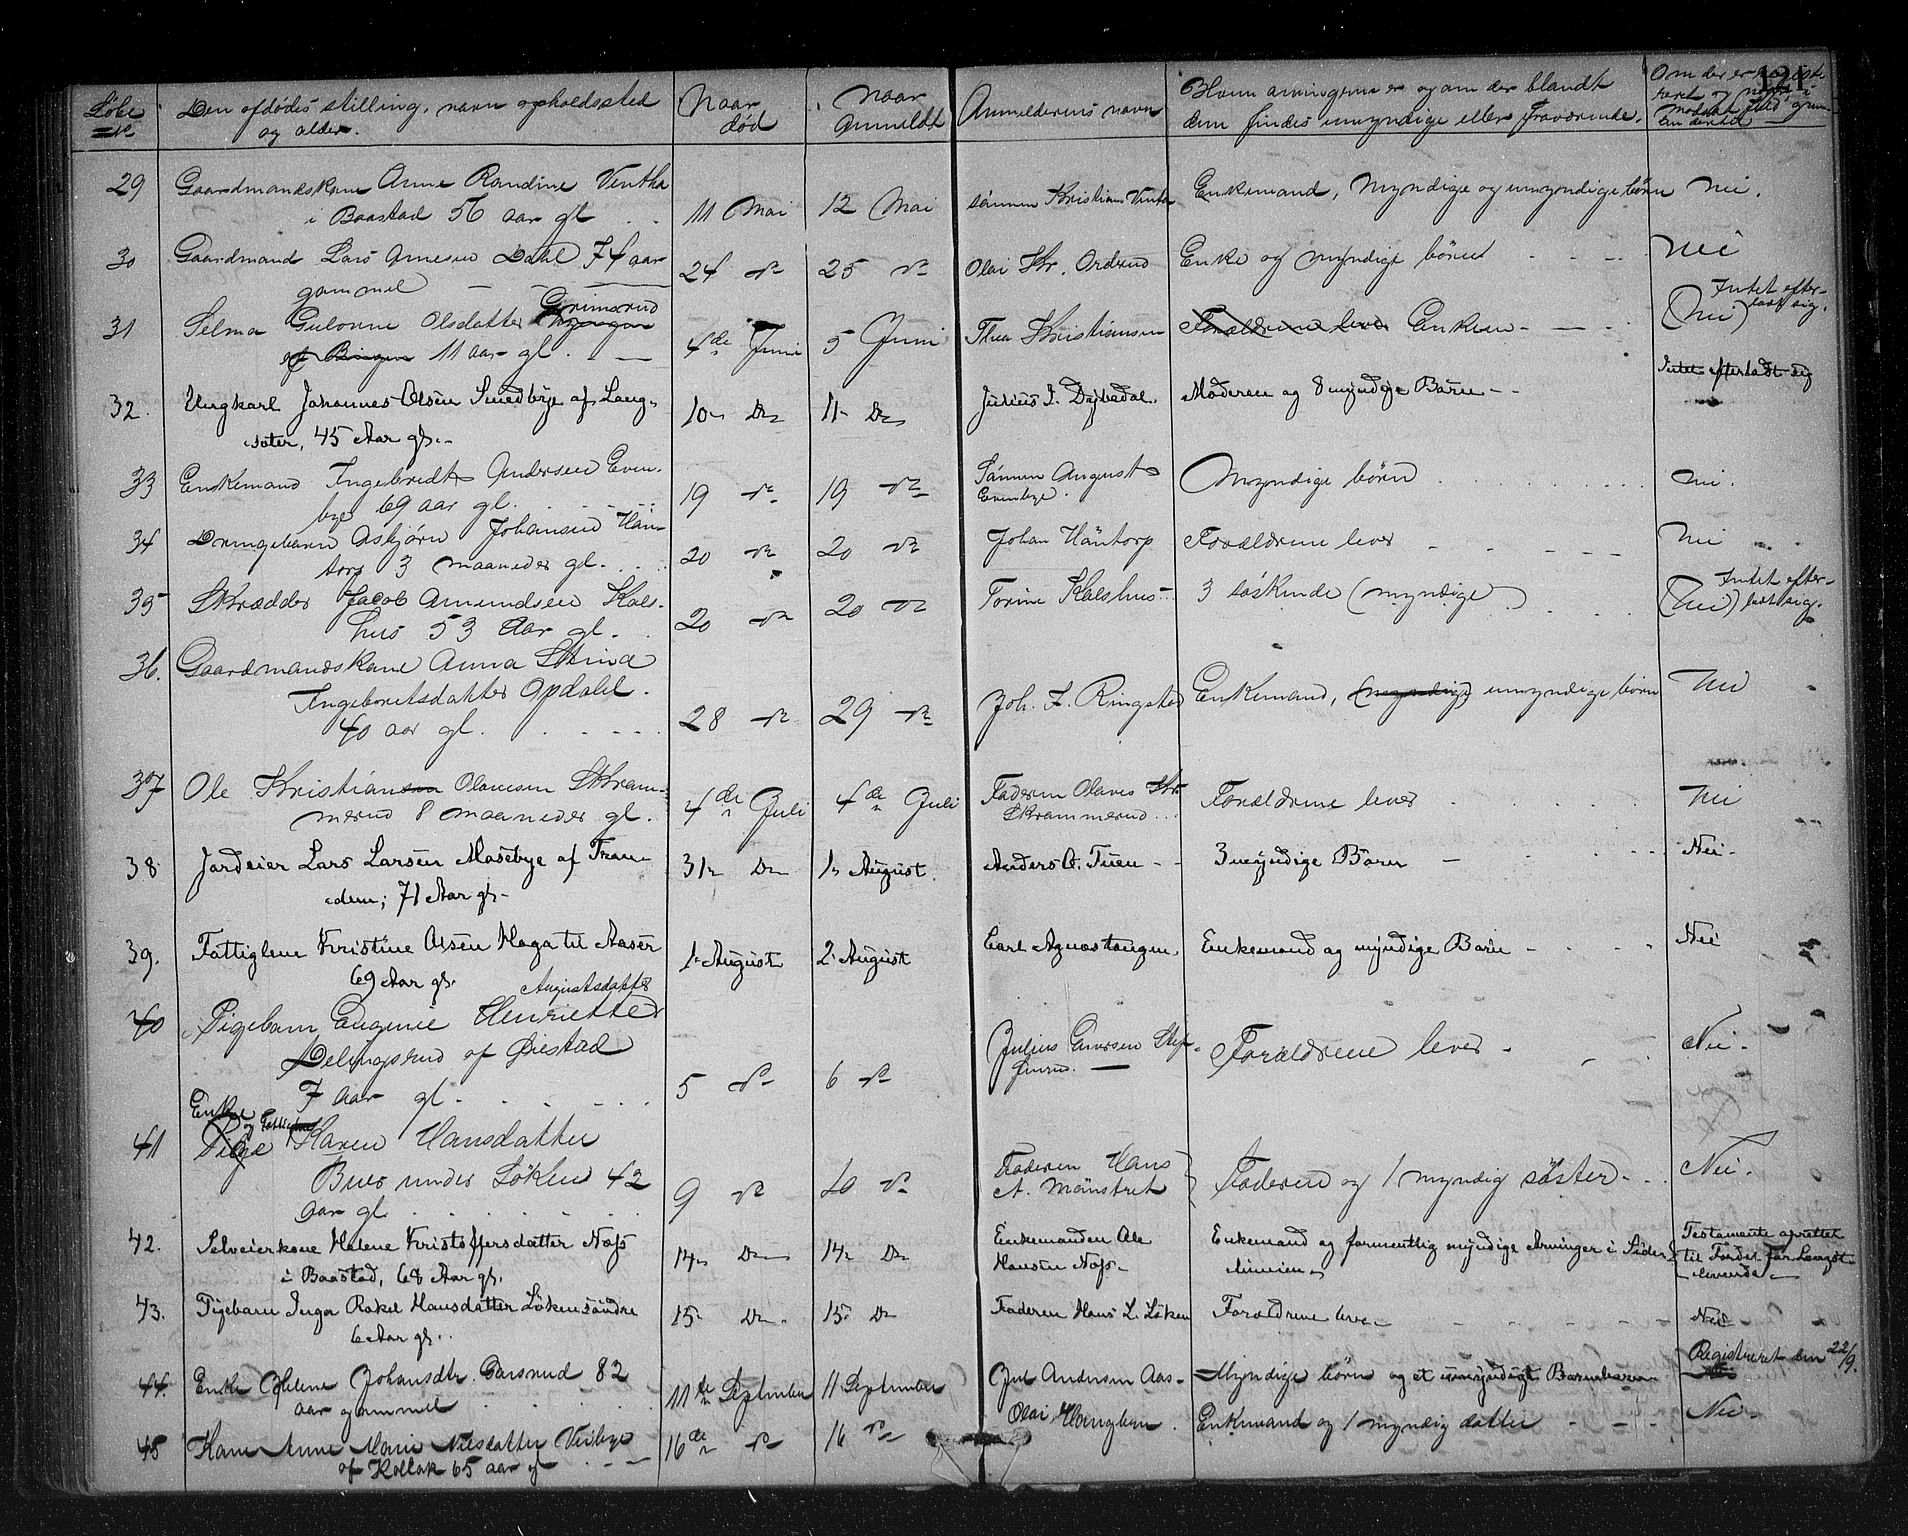 Löbe № | Den afdödes stilling, navn opholdssted og alder. | Naar död | Naar Anmeldt | Anmelderens navn | Hvem arvingerne er og om der blandt dem findes umyndige eller Fraværende. | Om der er regist reret og i modsat fald grunden dertil
121
29 Gaardmandskone Anne Randine Ventha
i Baastad 56 aar gl | 11 Mai | 12 Mai | sönnen Kristian | Enkemand, Myndige og umyndige börn | nei.
30 Gaardmand Lars Arnesen Dahl 74 aar
gammel | 24 do | 25 do | Olai Kr. Ordrud | Enke og myndige börn | nei
31 Selma Gulovne Olsdatter Grimsrud
af Bingen 11 aar gl. | 4de Juni | 5 Juni | Thea Kristiansen | Forældrene lever Enken | (nei) Intet efter-
ladt sig.
32. Ungkarl Johannes Olsen Smedbye af Lang-
sæter, 45 Aar gl. | 10 Do | 11 Do | Julius J. | Moderen og 8 myndige Börn | Intet efterladt sig
33 Enkemand Ingebredt Andersen Even-
bye 69 aar gl. | 19 do | 19 do | Sönnen August
Evenbye. | Myndige börn | nei.
34 Drengebarn Asbjörn Johansen Hän-
torp 3 maaneder gl. | 20 do | 20 do | Johan Häntorp | Forældrene lever | nei
35 Skrædder Jacob Amundsen Kals-
hus 53 Aar gl. | 20 do | 20 do | Torine Kalshus | 3 söskende (myndige) | (nei) Intet efter-
ladt sig.
36. Gaardmandskone Anna Stina
Ingebretsdatter Opdahl.
40 aar gl. | 28 do | 29 do | Joh. F. Ringstad | Enkemand, (myndige) umyndige börn | nei
37 Ole Kristiansen Olavesen Skram-
merud 8 maaneder gl. | 4de Juli | 4de Juli | Faderen Olaves Kr.
Skrammerud | Forældrene lever | nei
38 Jordeier Lars Larsen Mosebye af Tran-
; 71 Aar gl. | 31 Do | 1 August. | Anders O. Tuen | 3 myndige Börn | Nei
39. Fattiglem Kristine Olsen Haga til Aaser
69 Aar gl. | 1 August | 2 August | Carl Agnæstangen | Enkemand og myndige Börn | Nei
40 Pigebarn Eugenie Henriette Augustsdatter
Delingsrud af Öiestad
7 aar gl. | 5 do | 6 do | Julius | Forældrene lever | Nei.
41 Enke og Fattiglem
Pige Karen Hansdatter
Buer under Löken 42
aar gl. | 9 do | 10 do | Faderen Hans
A. Mönstret | Faderen og 1 myndig söster | Nei.
42. Selveierkone Helene Kristoffersdatter Næs
i Baastad, 68 Aar gl. | 14 Do | 14 Do | Enkemanden Ole
Hansen Næs | Enkemand og formentlig myndige Arvinger i Side-
linien | Testamente oprettet
til Fordel for Længst-
levende
43. Pigebarn Inga Rakel Hansdatter Löken söndre
6 Aar gl. | 15 Do | 15 Do | Faderen Hans L. Löken | Forældrene leve | Nei
44. Enke Helene Johansdtr. Garsrud 82
aar gammel | 11te September | 11 September | Jul Andersen Aas | Myndige börn og et umyndigt Barnebarn | Registreret den 22/9.
Nei
45 Kone Anne Marie Nilsdatter Viibye
af Kollok 65 aar gl | 16de do | 16 do | Olai Haugbern. | Enkemand og 1 myndig datter | Nei